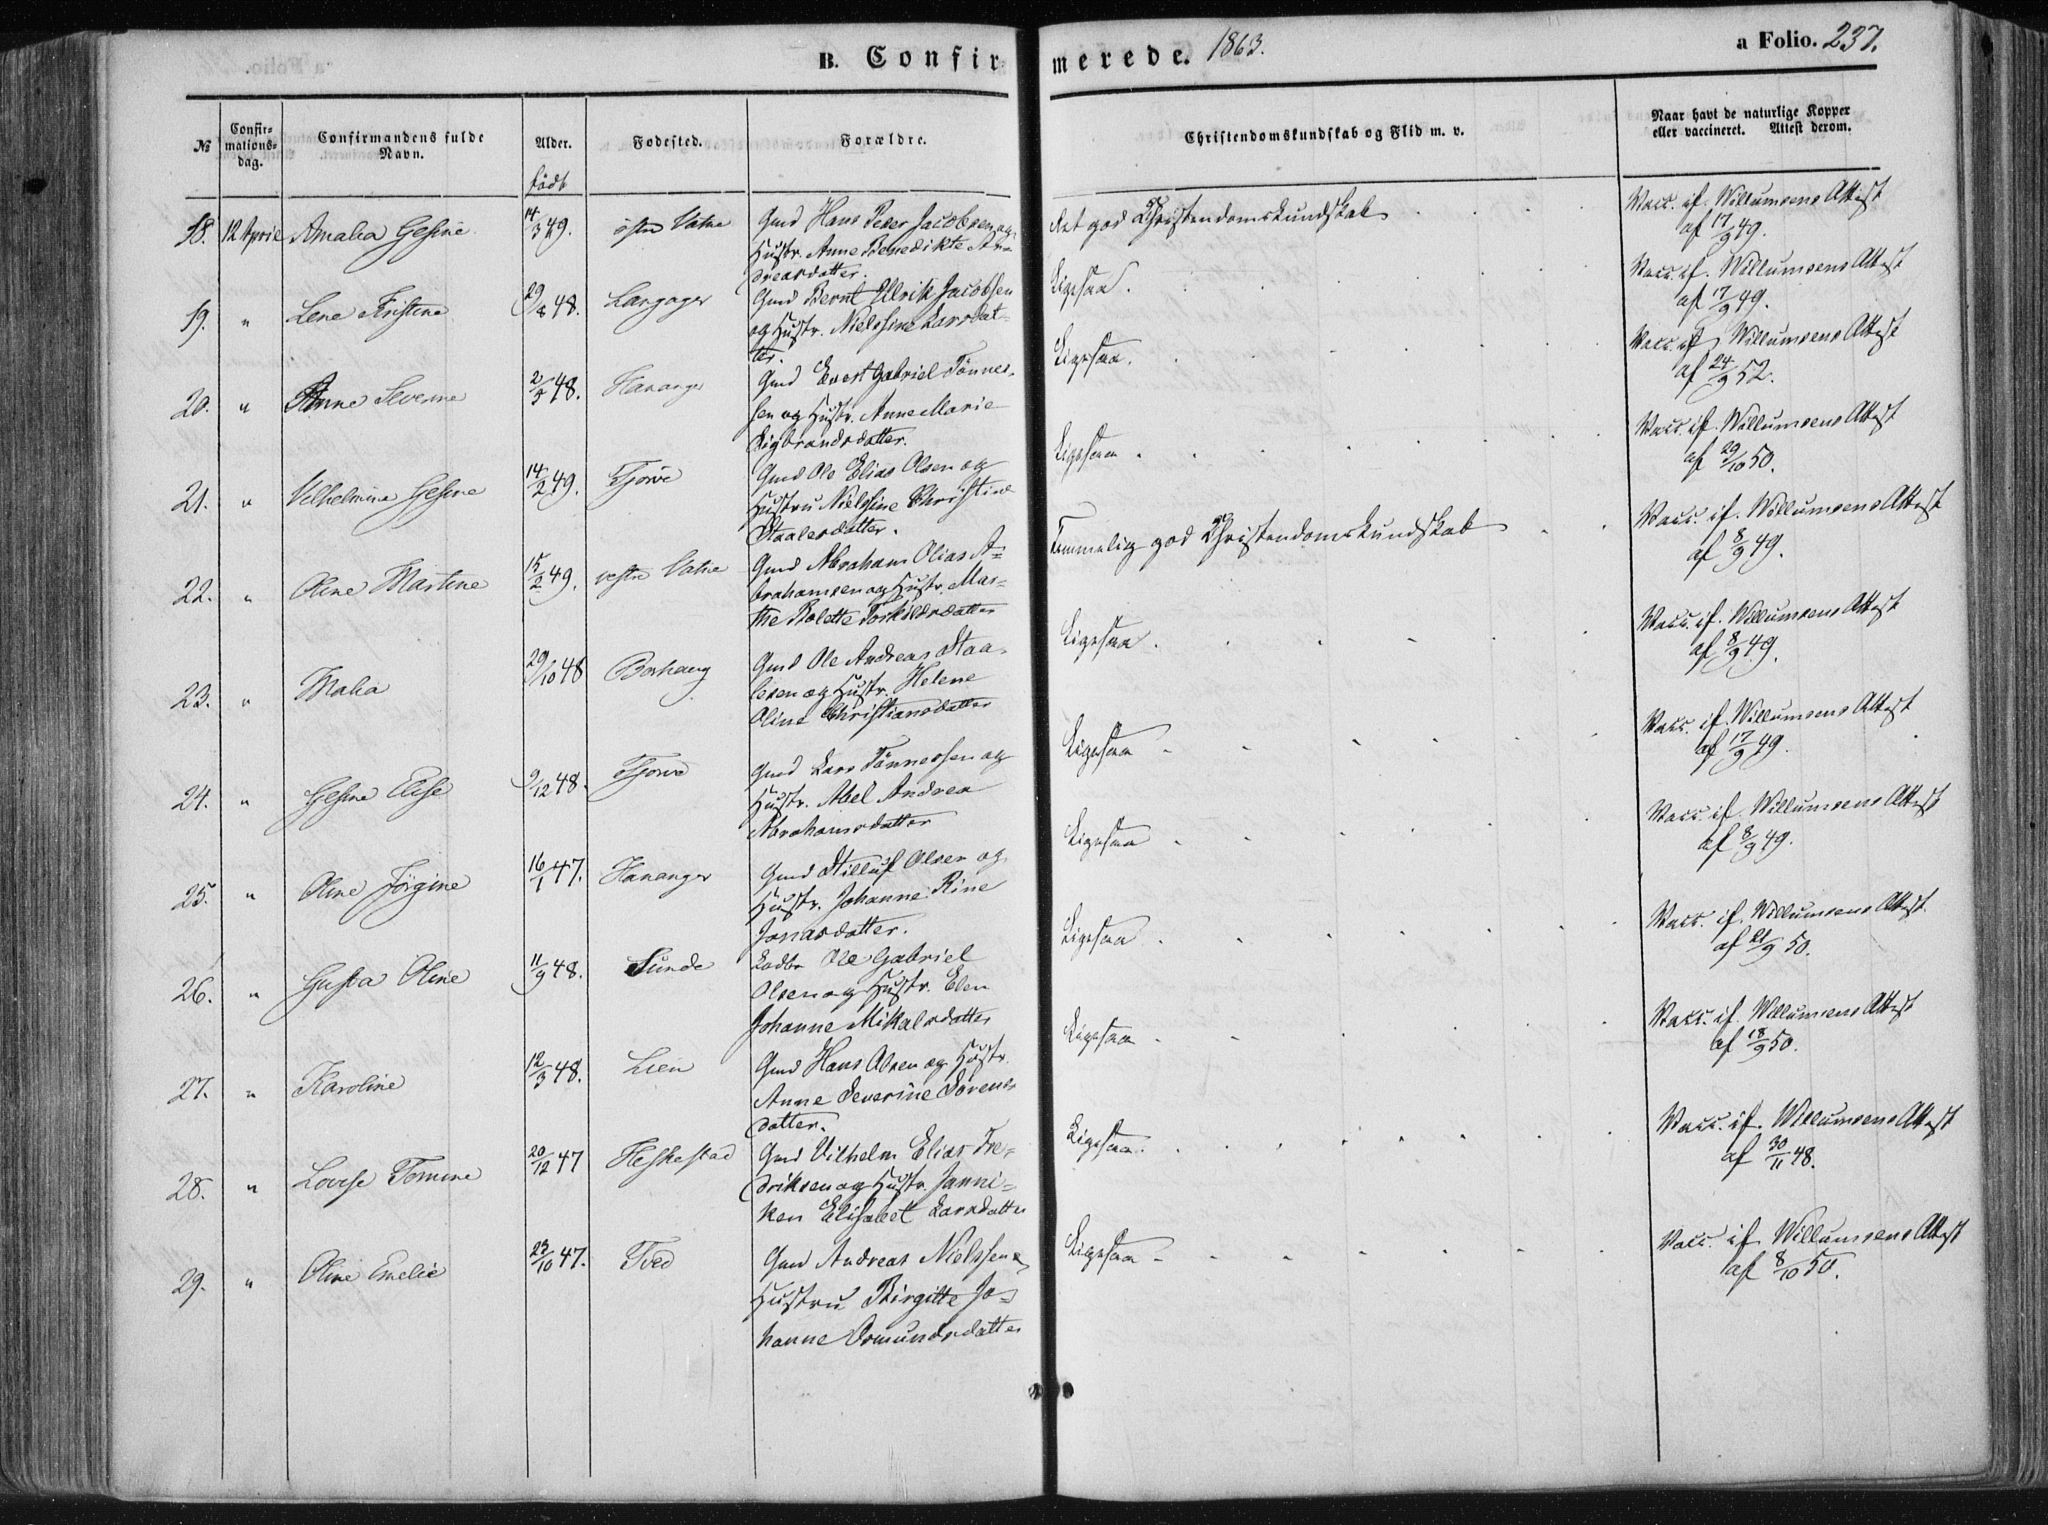 B. Confirmerede. 1863.
a Folio. 237.
№
Confirmationsdag.
Confirmandens fulde Navn.
Alder.
født
Fødested.
Forældre.
Christendomskundskab og Flid m. v.
Naar havt de naturlige Kopper eller vaccineret. Attest derom.
18. 12 April Amalia Gesine 14/3 49. østre Vatne Gmd Hans Peder Jacobsen og
Hustr. Anne Benedikte An-
dreasdatter.
Ret god Christendomskundskab
Vacc. if. Willumsens Attest
af 17/9 49.
19. " Lene Kristine 29/8 48. Langager Gmd Bernt Ullrik Jacobsen
og Hustr. Nielssine Larsdat-
ter.
Ligesaa.
Vacc. if. Willumsens Attest
af 17/9 49.
20. " Anne Severine 48. Hananger Gmd Evert Gabriel Tønnes-
sen og Hustr. Anne Marie
Sigbrandsdatter.
Ligesaa.
Vacc. if. Willumsens Attest
af 24/9 52.
21. " Vilhelmine Gesine 14/2 49. Tjørve Gmd Ole Elias Olsen og
Hustru Nielssine Christine
Staalesdatter.
Ligesaa
Vacc. if. Willumsens Attest
af 29/10 50.
22. " Oline Martine 15/2 49. vestre Vatne Gmd Abraham Olias A-
brahamsen og Hustr. Mar-
the Bolette Torkildsdatter
Temmelig god Christendomskundskab
Vacc. if. Willumsens Attest
af 8/9 49.
23. " Malia 29/10 48 Borhaug Gmd Ole Andreas Staa-
lesen og Hustr. Helene
Oline Christiansdatter
Ligesaa.
Vacc. if. Willumsens Attest
af 8/9 49.
24. " Gesine Elise 9/12 48. Tjørve Gmd Lars Tønnessen og
Hustr. Abel Andrea
Abrahamsdatter
Ligesaa
Vacc. if. Willumsens Attest
af 17/9 49.
25. " Oline Jørgine 16/1 47. Hananger Gmd Stilluf Olsen og
Hustr. Johanne Rine
Jonasdatter.
Ligesaa
Vacc. if. Willumsens Attest
af 8/9 49.
26. " Gusta Oline 11/9 48. Sunde Ladbr Ole Gabriel
Olsen og Hustr. Elen
Johanne Mikalsdatter
Ligesaa
Vacc. if. Willumsens Attest
af 21/9 50.
27. " Karoline 12/3 48. Lien Gmd Hans Olsen og Hustr.
Anne Severine Sørens-
datter.
Ligesaa
Vacc. if. Willumsens Attest
af 18/9 50.
28. " Lovise Tomine 20/12 47 Heskestad Gmd Vilhelm Elias Fre-
driksen og Hustr. Janni-
ken Elisabet Larsdatter
Ligesaa.
Vacc. if. Willumsens Attest
af 30/11 48.
29. " Oline Emelie 23/10 47. Tved Gmd Andreas Nielssen
Hustru Birgitte Jo-
hanne Osmundsdatter
Ligesaa
Vacc. if. Willumsens Attest
af 8/10 50.